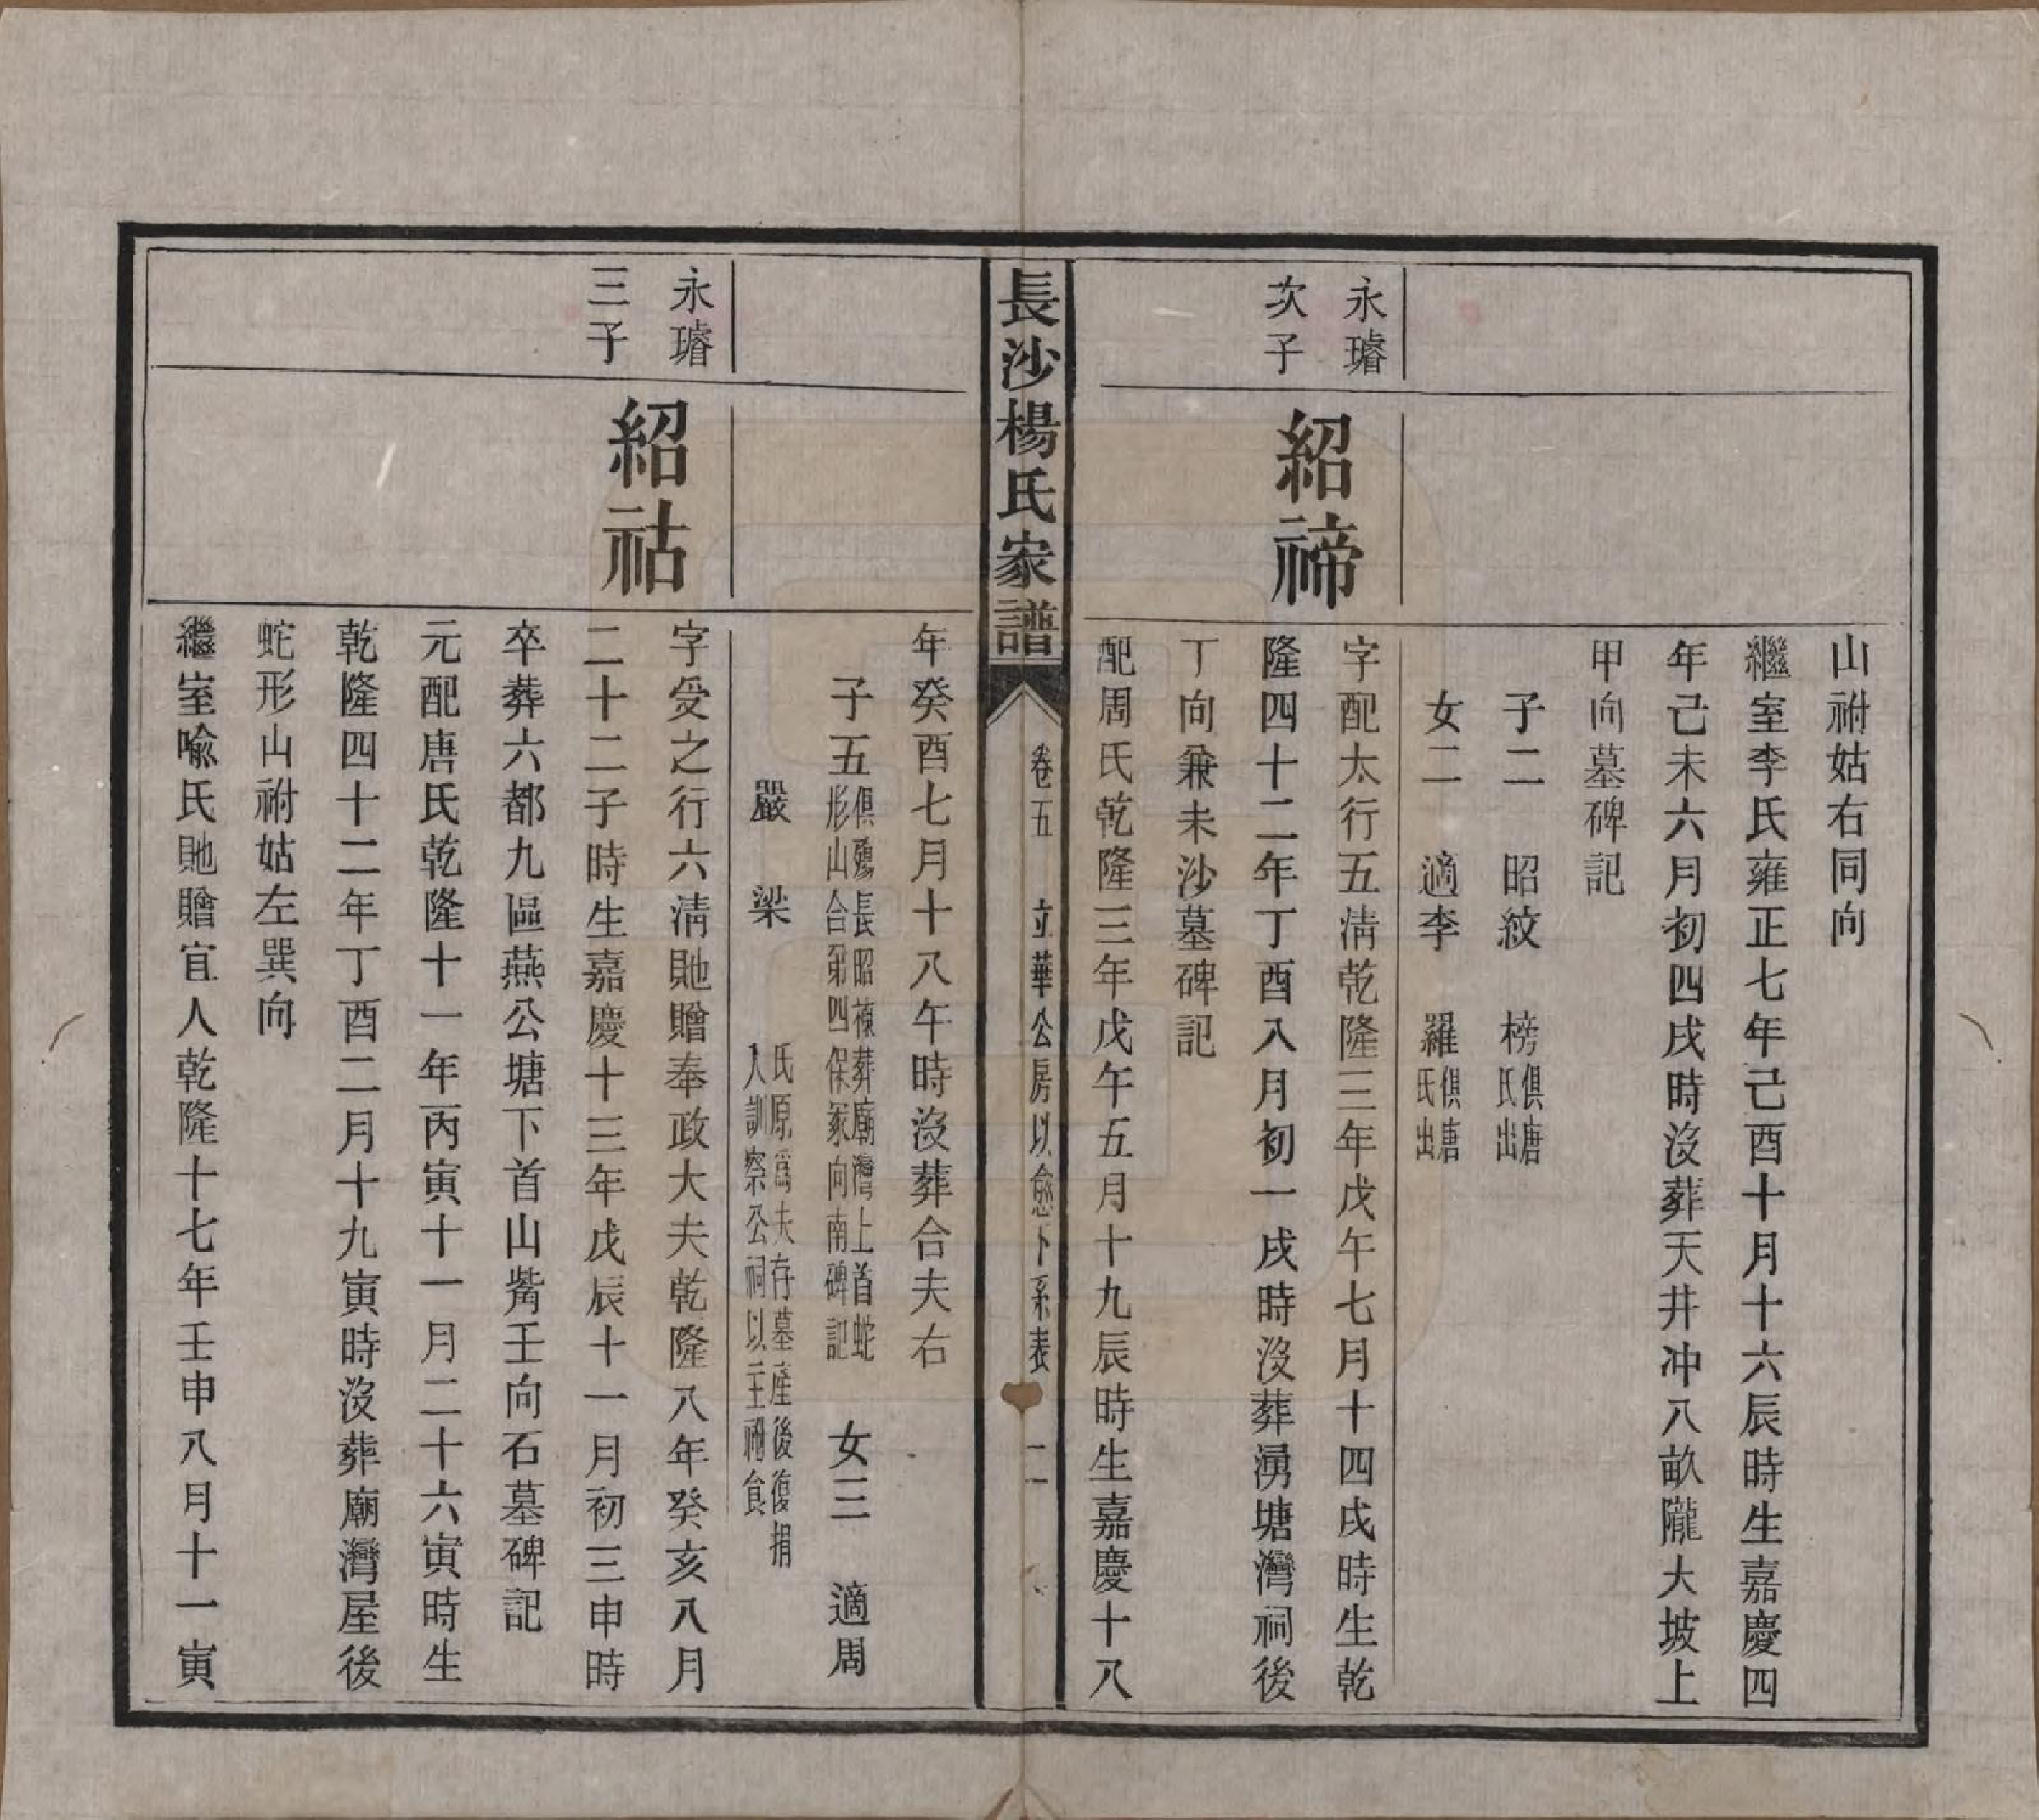 山祔姑右同向
繼室李氏雍正七年己酉十月十六辰時生嘉慶四
年己未六月初四戌時沒葬天井冲八畝隴大坡上
甲向墓碑記
子二　昭紋　榜俱唐氏出
女二　適李　羅俱唐氏出
永璿
次子
紹禘
字配太行五淸乾隆三年戊午七月十四戌時生乾
隆四十二年丁酉八月初一戌時沒葬湧塘灣祠後
丁向兼未沙墓碑記
配周氏乾隆三年戊午五月十九辰時生嘉慶十八
長沙楊氏家譜
卷五　立華公房以愈下系表　二一
年癸酉七月十八午時沒葬合夫右
子五俱殤長昭棟葬廟灣上首蛇形山合第四保冢向南碑記　女三　適周
嚴　梁　氏原爲夫存墓產後復捐入訓察公祠以二主祔食
永璿
三子
紹祜
字受之行六淸貤贈奉政大夫乾隆八年癸亥八月
二十二子時生嘉慶十三年戊辰十一月初三申時
卒葬六都九區燕公塘下首山觜壬向石墓碑記
元配唐氏乾隆十一年丙寅十一月二十六寅時生
乾隆四十二年丁酉二月十九寅時沒葬廟灣屋後
蛇形山祔姑左巽向
繼室喩氏貤贈宜人乾隆十七年壬申八月十一寅